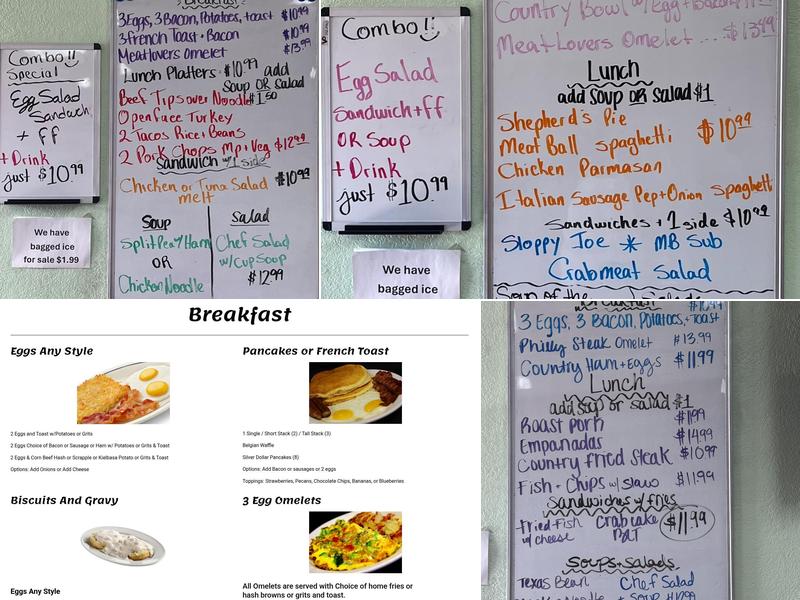 Combo!!
Special
Egg Salad
Sandwich
+ ff
+ Drink
just $10.99
We have
bagged ice
for sale $1.99
Breakfast
3 Eggs, 3 Bacon, Potatoes, toast $10.99
3 french Toast + Bacon $10.99
Meatlovers Omelet $13.99
Lunch Platters $10.99 add
Soup OR Salad
$1.50
Beef Tips over Noodle
Open face Turkey
2 Tacos Rice + Beans
2 Pork Chops Mp + Veg $12.99
Sandwich w/ 1 side
Chicken or Tuna Salad $10.99
melt
Soup
Split Pea w/ Ham
OR
Chicken Noodle
Salad
Chef Salad
w/ Cup Soup
$12.99
Combo!!
Egg Salad
Sandwich + ff
OR Soup
+ Drink
just $10.99
We have
bagged ice
Country Bowl w/ Egg + Bacon
MeatLovers Omelet ... $13.99
Lunch
add Soup OR Salad $1
Shepherd's Pie
Meat Ball Spaghetti $10.99
Chicken Parmasan
Italian Sausage Pep + Onion Spaghetti
Sandwiches + 1 side $10.99
Sloppy Joe * MB Sub
Crabmeat Salad
Soup of the
Breakfast
Eggs Any Style
2 Eggs and Toast w/Potatoes or Grits
2 Eggs Choice of Bacon or Sausage or Ham w/ Potatoes or Grits & Toast
2 Eggs & Corn Beef Hash or Scrapple or Kielbasa Potato or Grits & Toast
Options: Add Onions or Add Cheese
Pancakes or French Toast
1 Single / Short Stack (2) / Tall Stack (3)
Belgian Waffle
Silver Dollar Pancakes (8)
Options: Add Bacon or sausages or 2 eggs
Toppings: Strawberries, Pecans, Chocolate Chips, Bananas, or Blueberries
Biscuits And Gravy
Eggs Any Style
3 Egg Omelets
All Omelets are served with Choice of home fries or
hash browns or grits and toast.
Breakfast
3 Eggs, 3 Bacon, Potatoes, + Toast
Philly Steak Omelet $13.99
Country Ham + Eggs $11.99
Lunch
add soup or salad $1
Roast Pork $11.99
Empanadas $14.99
Country fried Steak $10.99
Fish + Chips w/ slaw $11.99
Sandwiches w/ fries
Fried Fish Crab cake $11.99
w/ cheese BLT
Soups + Salads
Texas Bean Chef Salad